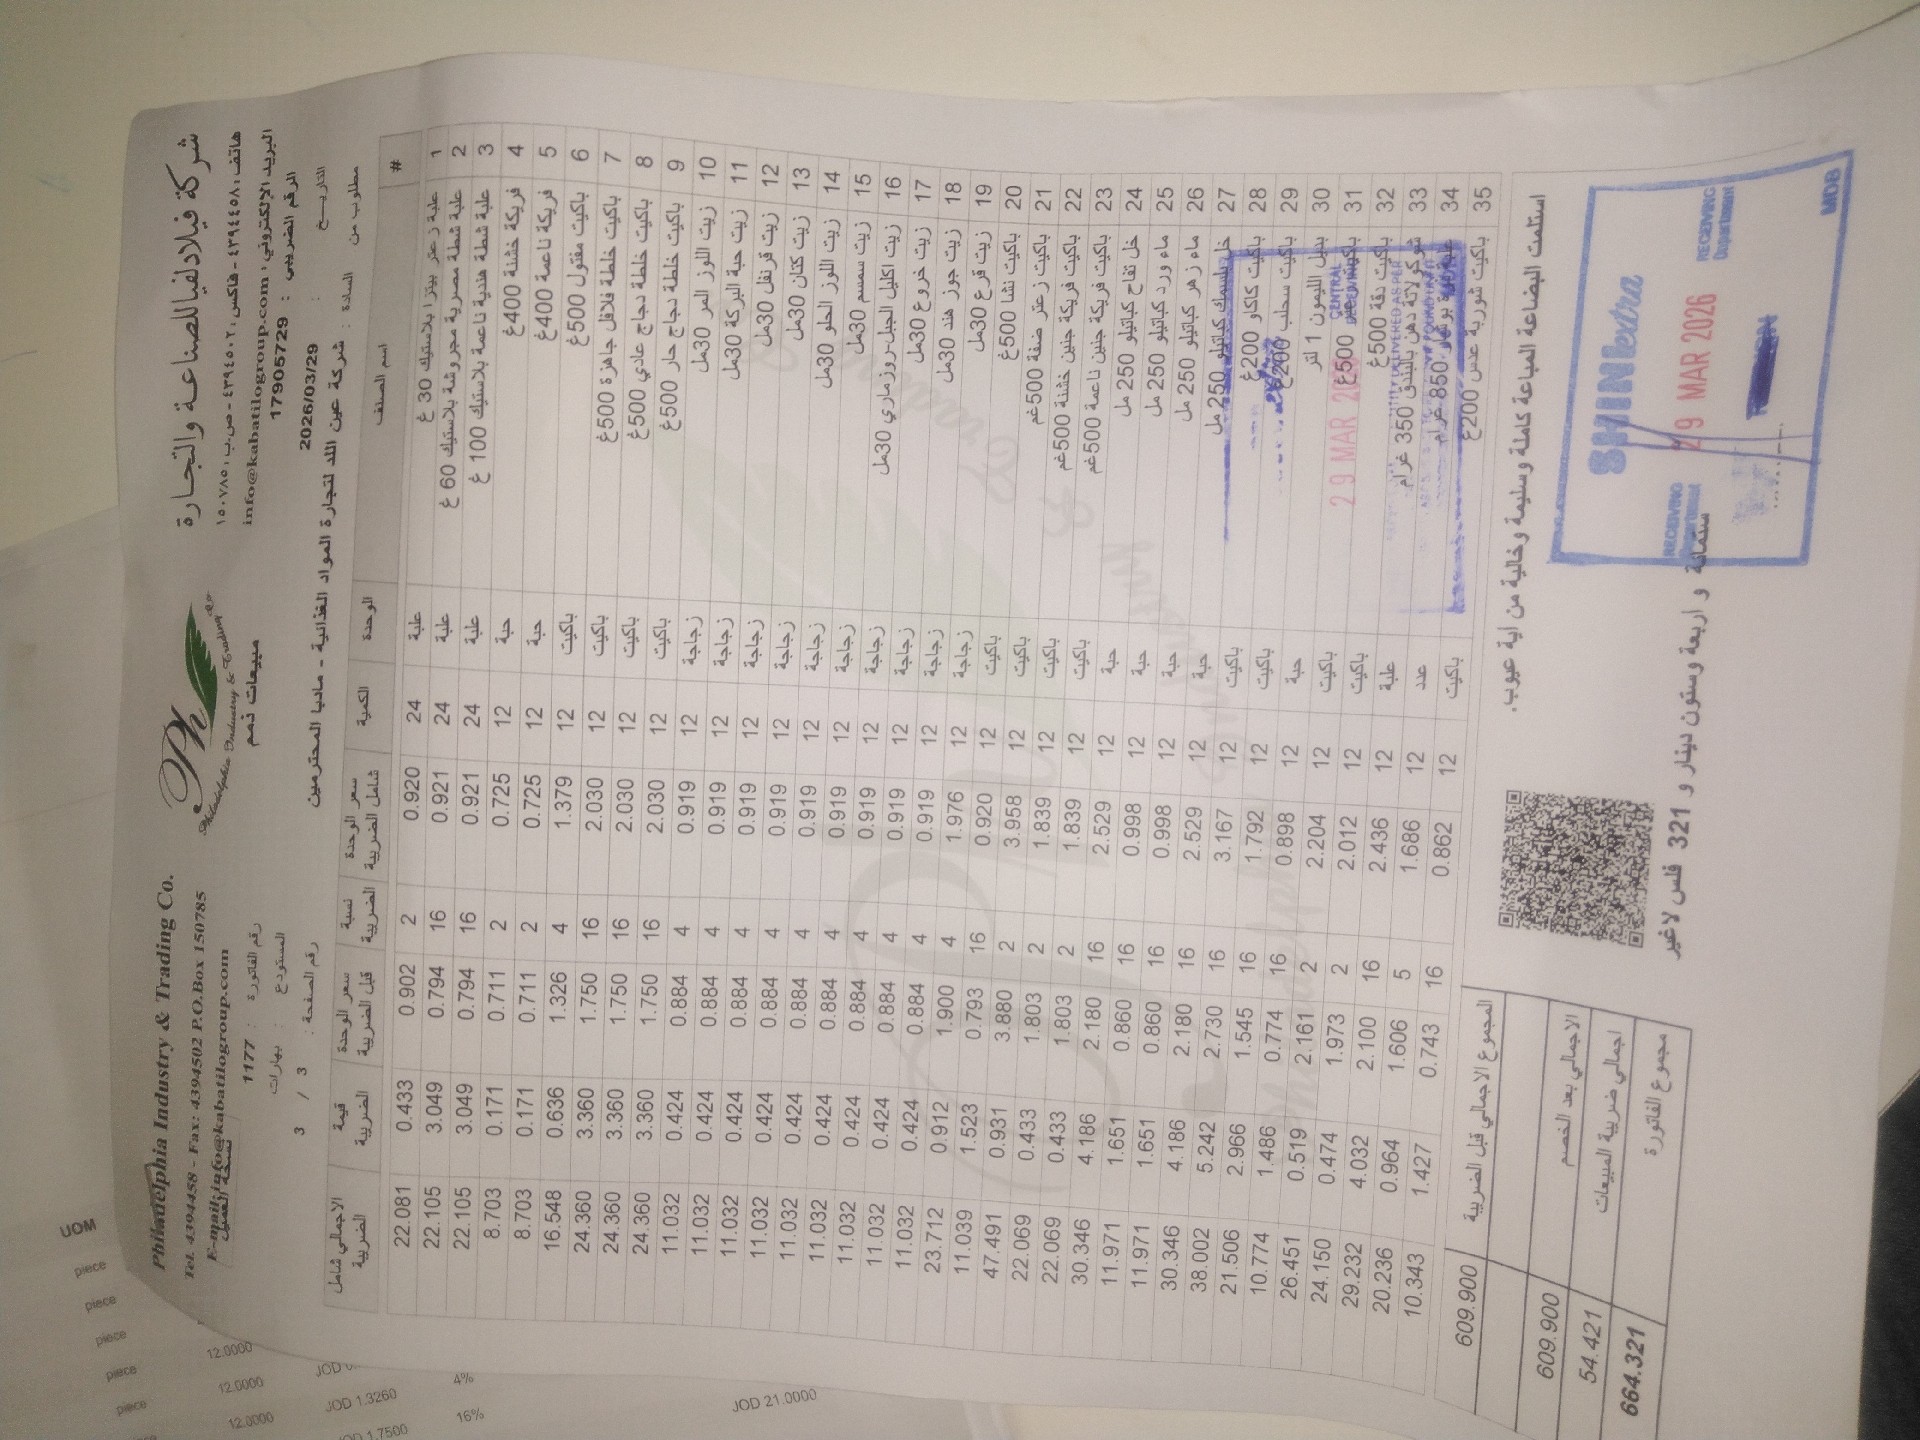 شركة فيلادلفيا للصناعة والتجارة
هاتف: ٤٣٩٤٤٥٨ - فاكس: ٤٣٩٤٥٠٢ - ص.ب: ١٥٠٧٨٥
البريد الإلكتروني: info@kabatilogroup.com
الرقم الضريبي : 17905729
Ph
Philadelphia Industry & Trading Co.
مبيعات ذمم
Philadelphia Industry & Trading Co.
Tel. 4394458 - Fax: 4394502 P.O.Box 150785
E-mail: info@kabatilogroup.com
نسخة العميل
رقم الفاتورة : 1177
المستودع : بهارات
رقم الصفحة : 3 / 3
التاريخ : 2026/03/29
مطلوب من السادة : شركة عين اللد لتجارة المواد الغذائية - مادبا المحترمين
# اسم الصنف الوحدة الكمية سعر الوحدة شامل الضريبة نسبة الضريبة سعر الوحدة قبل الضريبة قيمة الضريبة الاجمالي شامل الضريبة
1 علبة زعتر بيتزا بلاستيك 30 غ علبة 24 0.920 2 0.902 0.433 22.081
2 علبة شطة مصرية مجروشة بلاستيك 60 غ علبة 24 0.921 16 0.794 3.049 22.105
3 علبة شطة هندية ناعمة بلاستيك 100 غ علبة 24 0.921 16 0.794 3.049 22.105
4 فريكة خشنة 400غ حبة 12 0.725 2 0.711 0.171 8.703
5 فريكة ناعمة 400غ حبة 12 0.725 2 0.711 0.171 8.703
6 باكيت مفتول 500غ باكيت 12 1.379 4 1.326 0.636 16.548
7 باكيت خلطة فلافل جاهزة 500غ باكيت 12 2.030 16 1.750 3.360 24.360
8 باكيت خلطة دجاج عادي 500غ باكيت 12 2.030 16 1.750 3.360 24.360
9 باكيت خلطة دجاج حار 500غ باكيت 12 2.030 16 1.750 3.360 24.360
10 زيت اللوز المر 30مل زجاجة 12 0.919 4 0.884 0.424 11.032
11 زيت حبة البركة 30مل زجاجة 12 0.919 4 0.884 0.424 11.032
12 زيت قرنفل 30مل زجاجة 12 0.919 4 0.884 0.424 11.032
13 زيت كتان 30مل زجاجة 12 0.919 4 0.884 0.424 11.032
14 زيت اللوز الحلو 30مل زجاجة 12 0.919 4 0.884 0.424 11.032
15 زيت سمسم 30مل زجاجة 12 0.919 4 0.884 0.424 11.032
16 زيت اكليل الجبل-روزماري 30مل زجاجة 12 0.919 4 0.884 0.424 11.032
17 زيت خروع 30مل زجاجة 12 0.919 4 0.884 0.424 11.032
18 زيت جوز هند 30مل زجاجة 12 0.919 4 0.884 0.424 11.032
19 زيت قرع 30مل زجاجة 12 1.976 4 1.900 0.912 23.712
20 باكيت نشا 500غ باكيت 12 0.920 16 0.793 1.523 11.039
21 باكيت زعتر ضفة 500غم باكيت 12 3.958 2 3.880 0.931 47.491
22 باكيت فريكة جنين خشنة 500غم باكيت 12 1.839 2 1.803 0.433 22.069
23 باكيت فريكة جنين ناعمة 500غم باكيت 12 1.839 2 1.803 0.433 22.069
24 خل تفاح كباتيلو 250 مل حبة 12 2.529 16 2.180 4.186 30.346
25 ماء ورد كباتيلو 250 مل حبة 12 0.998 16 0.860 1.651 11.971
26 ماء زهر كباتيلو 250 مل حبة 12 0.998 16 0.860 1.651 11.971
27 خل بلسمك كباتيلو 250 مل حبة 12 2.529 16 2.180 4.186 30.346
28 باكيت كاكاو 200غ باكيت 12 3.167 16 2.730 5.242 38.002
29 باكيت سحلب 200غ باكيت 12 1.792 16 1.545 2.966 21.506
30 بديل الليمون 1 لتر حبة 12 0.898 16 0.774 1.486 10.774
31 باكيت 500غ باكيت 12 2.204 2 2.161 0.519 26.451
32 باكيت دقة 500غ باكيت 12 2.012 2 1.973 0.474 24.150
33 شوكولاتة دهن بالبندق 350 غرام علبة 12 2.436 16 2.100 4.032 29.232
34 علبة ذرة بوشار 850 غرام عدد 12 1.686 5 1.606 0.964 20.236
35 باكيت شوربة عدس 200غ باكيت 12 0.862 16 0.743 1.427 10.343
CENTRAL
RECEIVING
29 MAR 2026
DELIVERED AS PER
المجموع الاجمالي قبل الضريبة 609.900
الاجمالي بعد الخصم 609.900
اجمالي ضريبة المبيعات 54.421
مجموع الفاتورة 664.321
استلمت البضاعة المباعة كاملة وسليمة وخالية من اية عيوب.
ستمائة و اربعة وستون دينار و 321 فلس لاغير
RECEIVING
Department
SHINextra
29 MAR 2026
RECEIVING
Department
MDB
UOM
piece
piece
piece
piece
piece
12.0000
12.0000
12.0000
JOD 1.3260
JOD 1.7500
4%
16%
JOD 21.0000